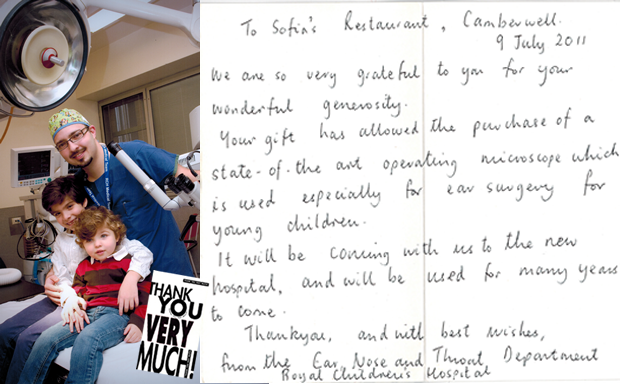 To Sofia's Restaurant, Camberwell.
9 July 2011
We are so very grateful to you for your
wonderful generosity.
Your gift has allowed the purchase of a
state-of-the art operating microscope which
is used especially for ear surgery for
young children.
It will be coming with us to the new
hospital, and will be used for many years
to come.
Thankyou, and with best wishes,
from the Ear Nose and Throat Department
Royal Children's Hospital
THANK
YOU
VERY
MUCH!